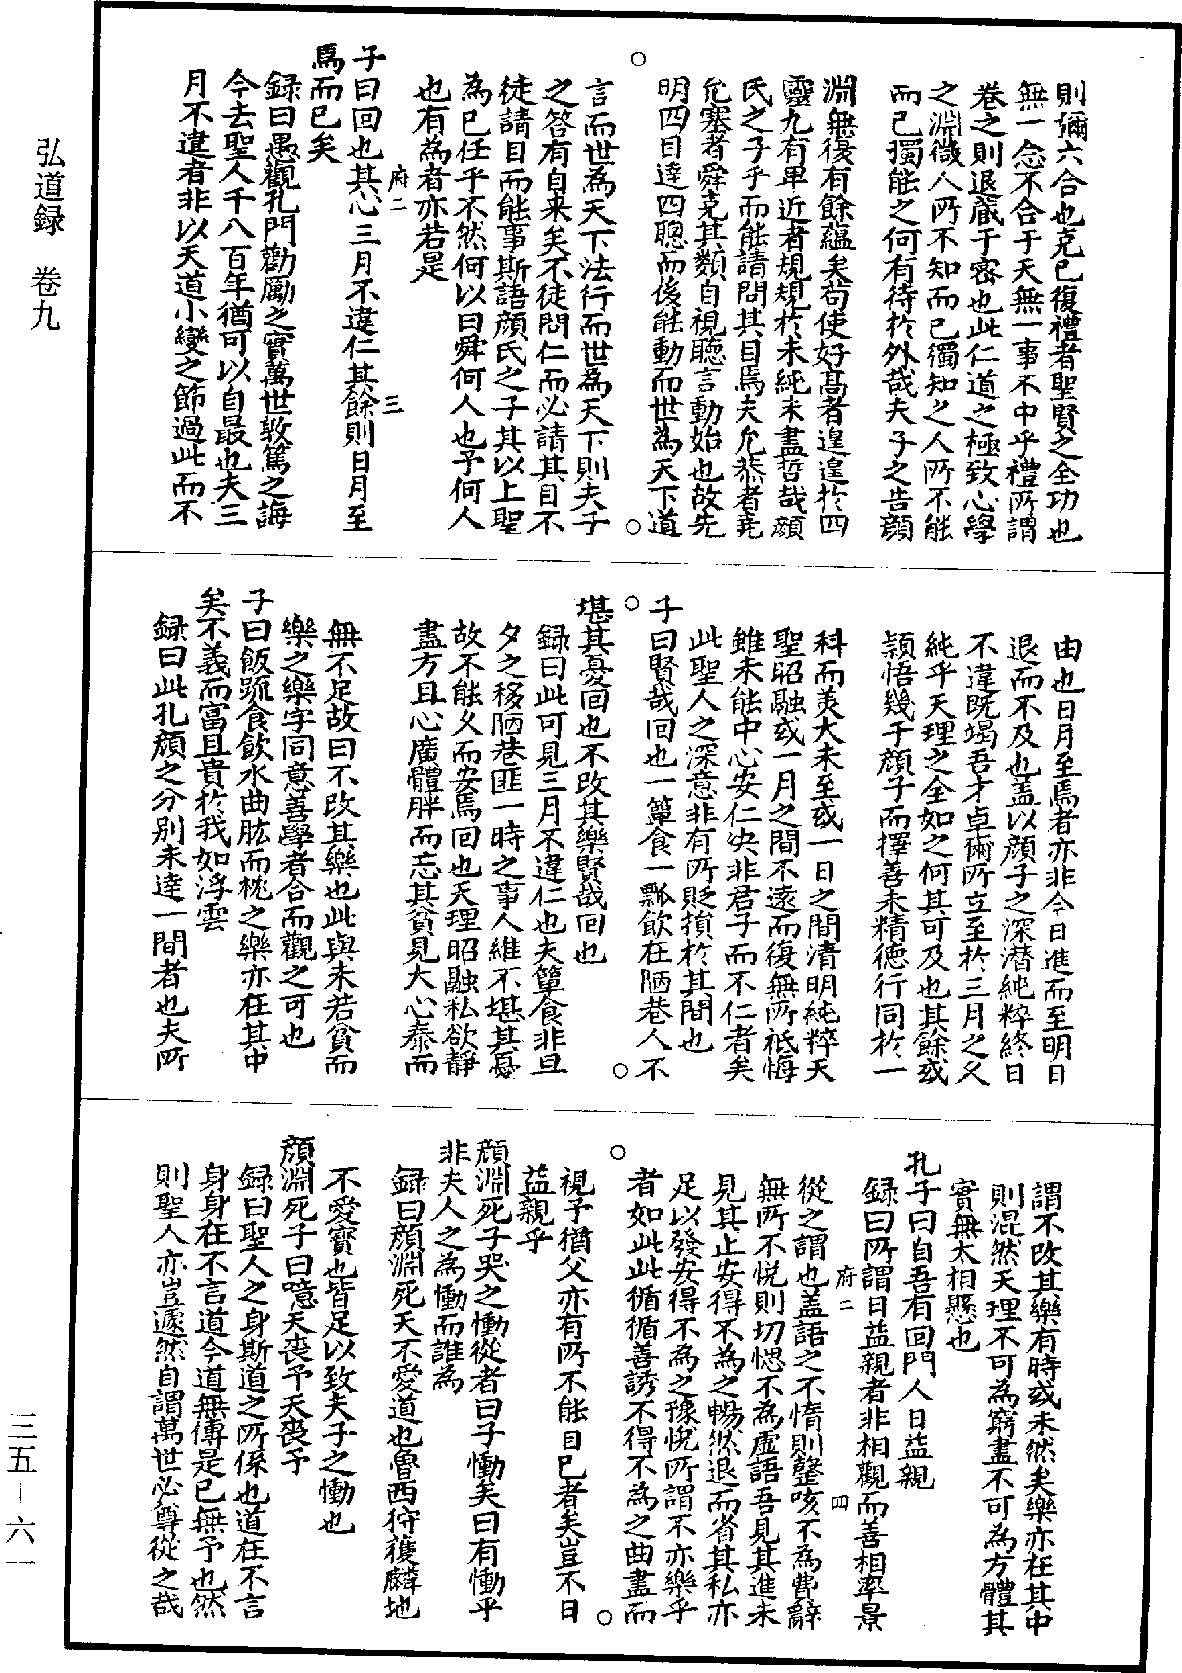 則彌六合也克己復禮者聖賢之全功也
無一念不合于天無一事不中乎禮所謂
卷之則退藏于密也此仁道之極致心學
之淵微人所不知而己獨知之人所不能
而己獨能之何有待於外哉夫子之告顏
淵無復有餘蘊矣苟使好高者遑遑於四
靈九有卑近者規規於未純未盡哲哉顏
氏之子乎而能請問其目焉夫允恭者堯
允塞者舜克其類自視聽言動始也故先
明四目達四聰而後能動而世為天下道
言而世為天下法行而世為天下則夫子
之答有自来矣不徒問仁而必請其目不
徒請目而能事斯語顏氏之子其以上聖
為己任乎不然何以曰舜何人也予何人
也有為者亦若是
府二
三
子曰回也其心三月不違仁其餘則日月至
焉而已矣
録曰愚觀孔門勸勵之實萬世敦篤之誨
今去聖人千八百年猶可以自最也夫三
月不違者非以天道小變之節過此而不
由也日月至焉者亦非今日進而至明日
退而不及也盖以顏子之深潛純粹終日
不違既竭吾才卓爾所立至於三月之久
純乎天理之全如之何其可及也其餘或
穎悟幾于顏子而擇善未精德行同於一
科而美大未至或一日之間清明純粹天
聖昭融或一月之間不遠而復無所祇悔
雖未能中心安仁央非君子而不仁者矣
此聖人之深意非有所貶損於其間也
子曰賢哉回也一簞食一瓢飲在陋巷人不
堪其憂回也不改其樂賢哉回也
録曰此可見三月不違仁也夫簞食非旦
夕之移陋巷匪一時之事人維不堪其憂
故不能久而安焉回也天理昭融私欲靜
盡方且心廣體胖而忘其貧見大心泰而
無不足故曰不改其樂也此與未若貧而
樂之樂字同意善學者合而觀之可也
子曰飯䟽食飲水曲肱而枕之樂亦在其中
矣不義而富且貴於我如浮雲
録曰此孔顏之分別未達一間者也夫所
謂不改其樂有時或未然矣樂亦在其中
則混然天理不可為窮盡不可為方體其
實無太相懸也
孔子曰自吾有回門人日益親
録曰所謂日益親者非相觀而善相率景
府二
四
從之謂也盖語之不惰則整咳不為費辭
無所不悅則切偲不為虛語吾見其進未
見其止安得不為之暢然退而省其私亦
足以發安得不為之豫悅所謂不亦樂乎
者如此此循循善誘不得不為之曲盡而
視予猶父亦有所不能自已者矣豈不日
益親乎
顏淵死子哭之慟從者曰子慟矣曰有慟乎
非夫人之為慟而誰為
録曰顏淵死天不愛道也魯西狩獲麟地
不愛寶也皆足以致夫子之慟也
顏淵死子曰噫天喪予天喪予
録曰聖人之身斯道之所係也道在不言
身身在不言道今道無傳是已無予也然
則聖人亦豈遽然自謂萬世必尊從之哉
弘道録　卷九
三五－六一